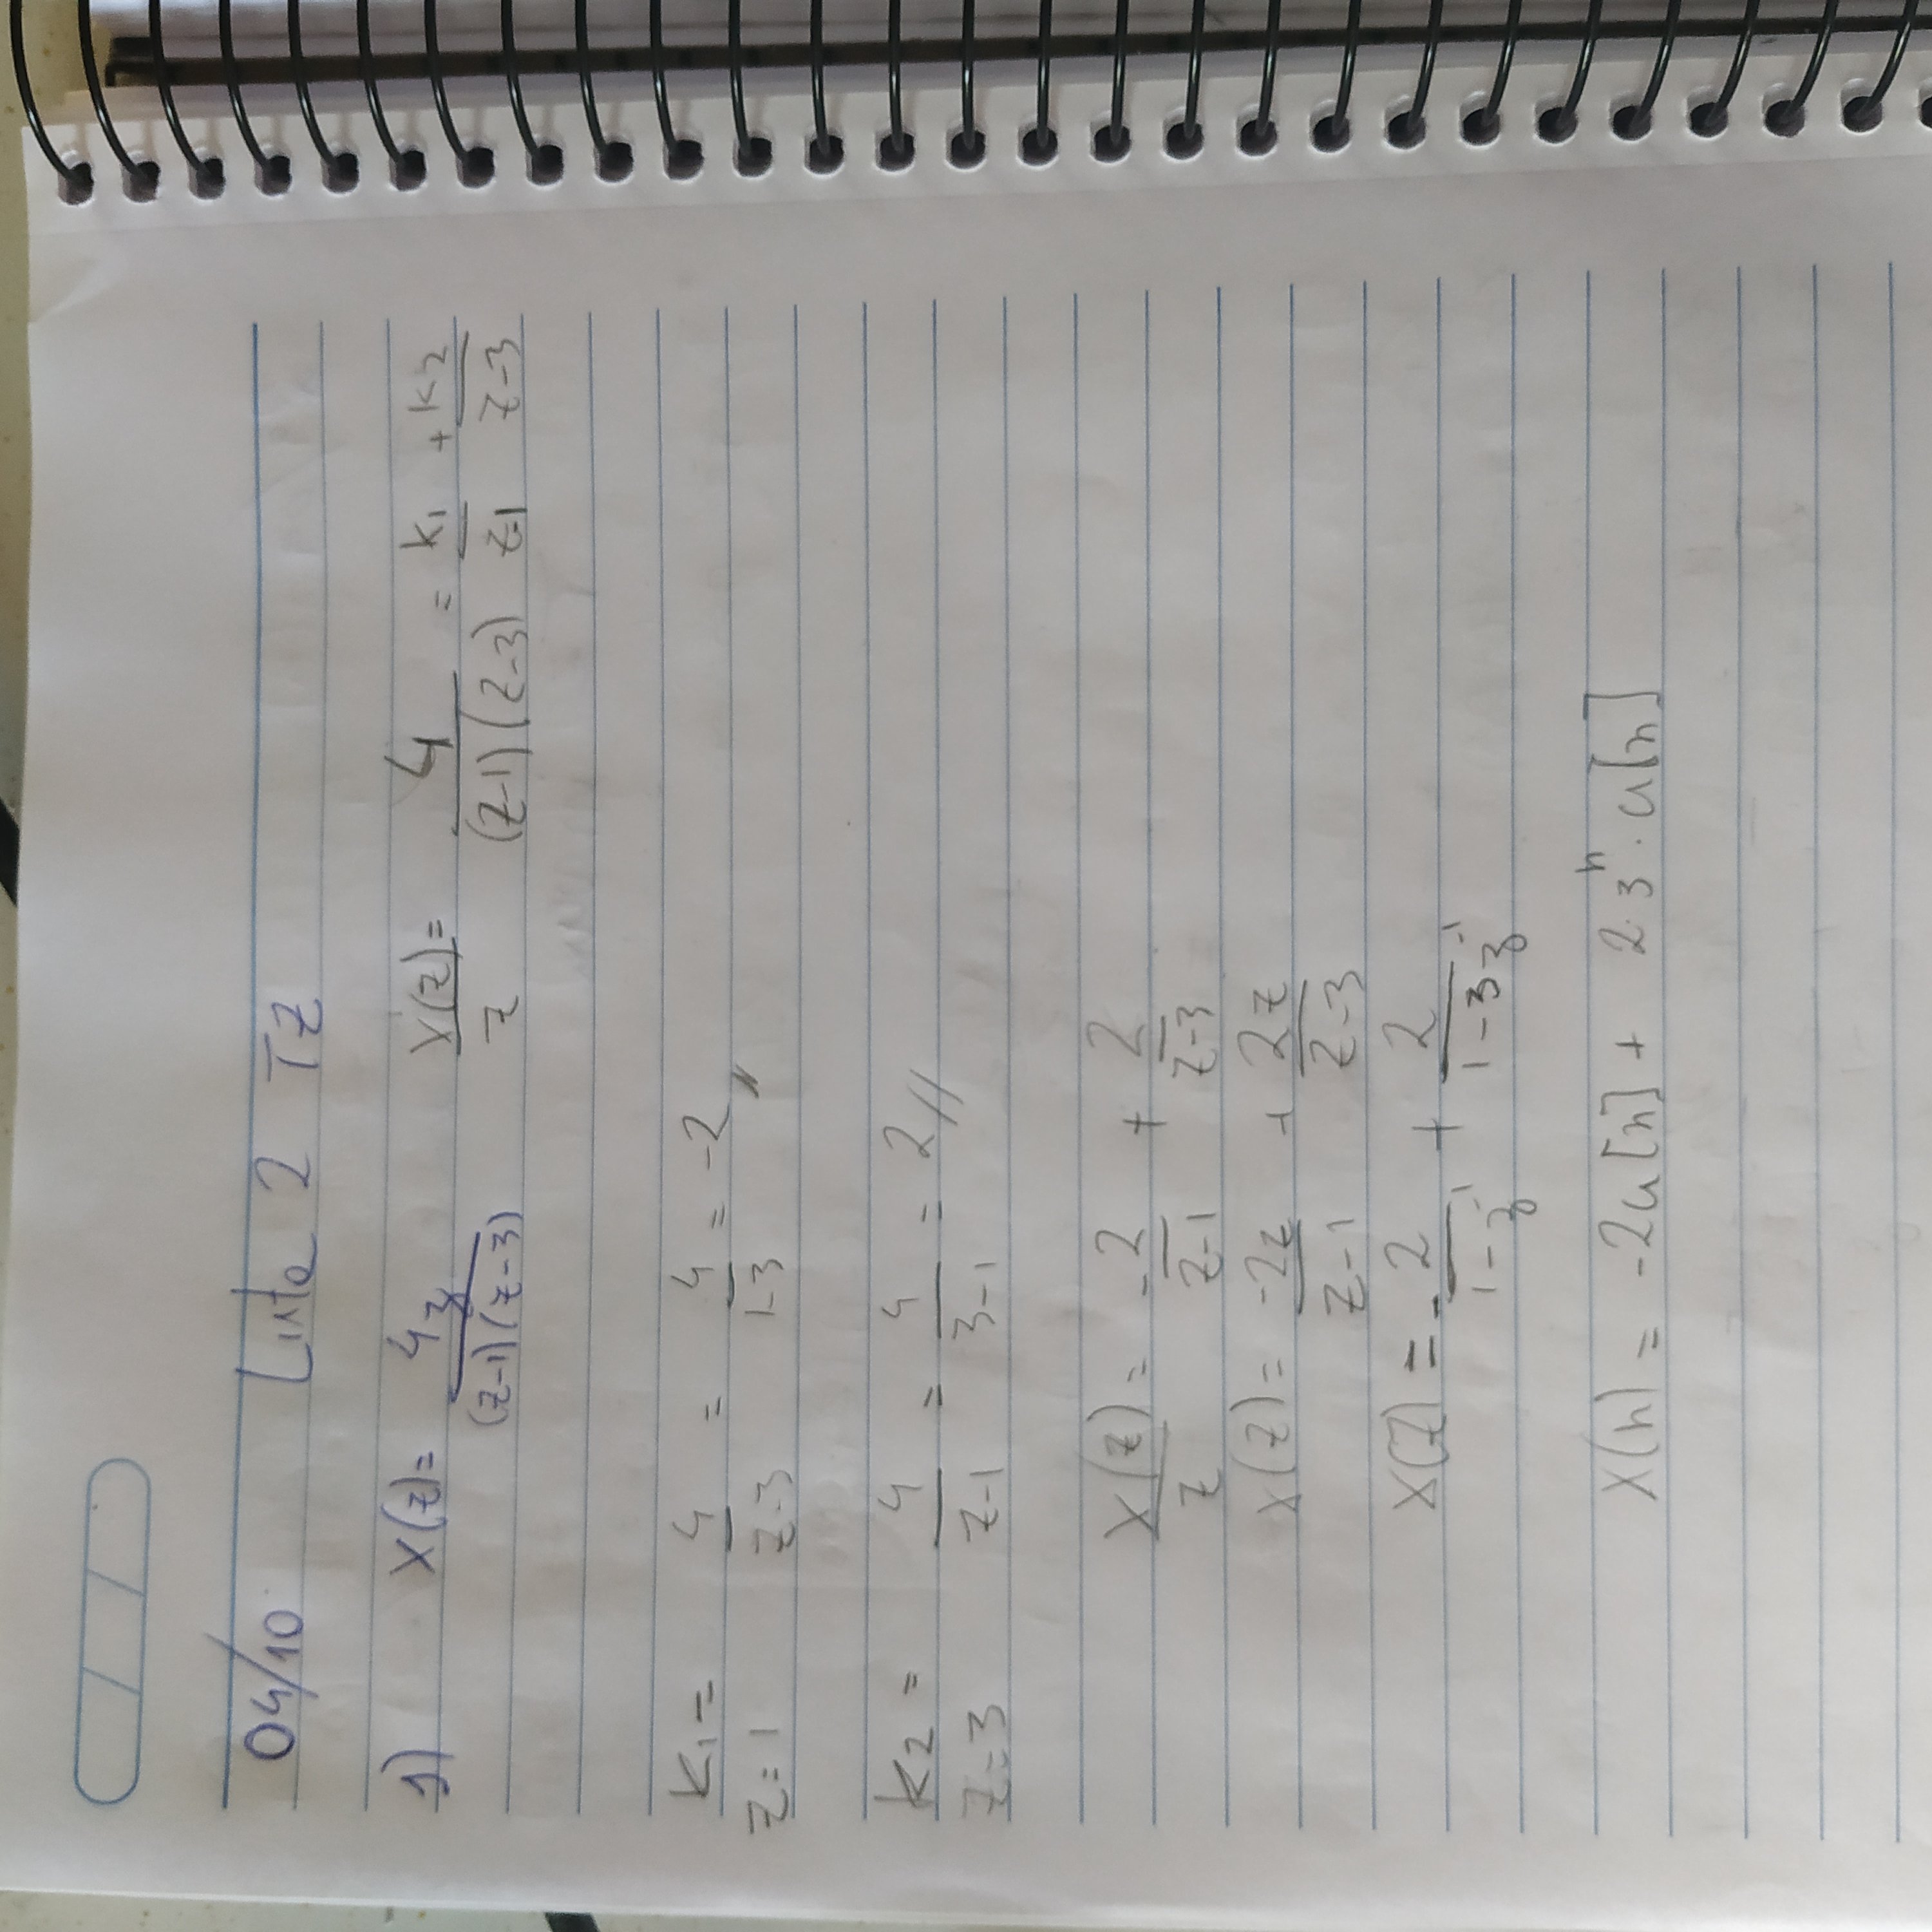 04/10 Lista 2 TZ
1) X(z)= 4z/((z-1)(z-3)) X(z)/z = 4/((z-1)(z-3)) = k₁/(z-1) + k₂/(z-3)
k₁ = 4/(z-3) = 4/(1-3) = -2//
z=1
k₂ = 4/(z-1) = 4/(3-1) = 2//
z=3
X(z)/z = -2/(z-1) + 2/(z-3)
X(z) = -2z/(z-1) + 2z/(z-3)
X(z) = -2/(1-z⁻¹) + 2/(1-3z⁻¹)
X(n) = -2u[n] + 2·3ⁿ·u[n]